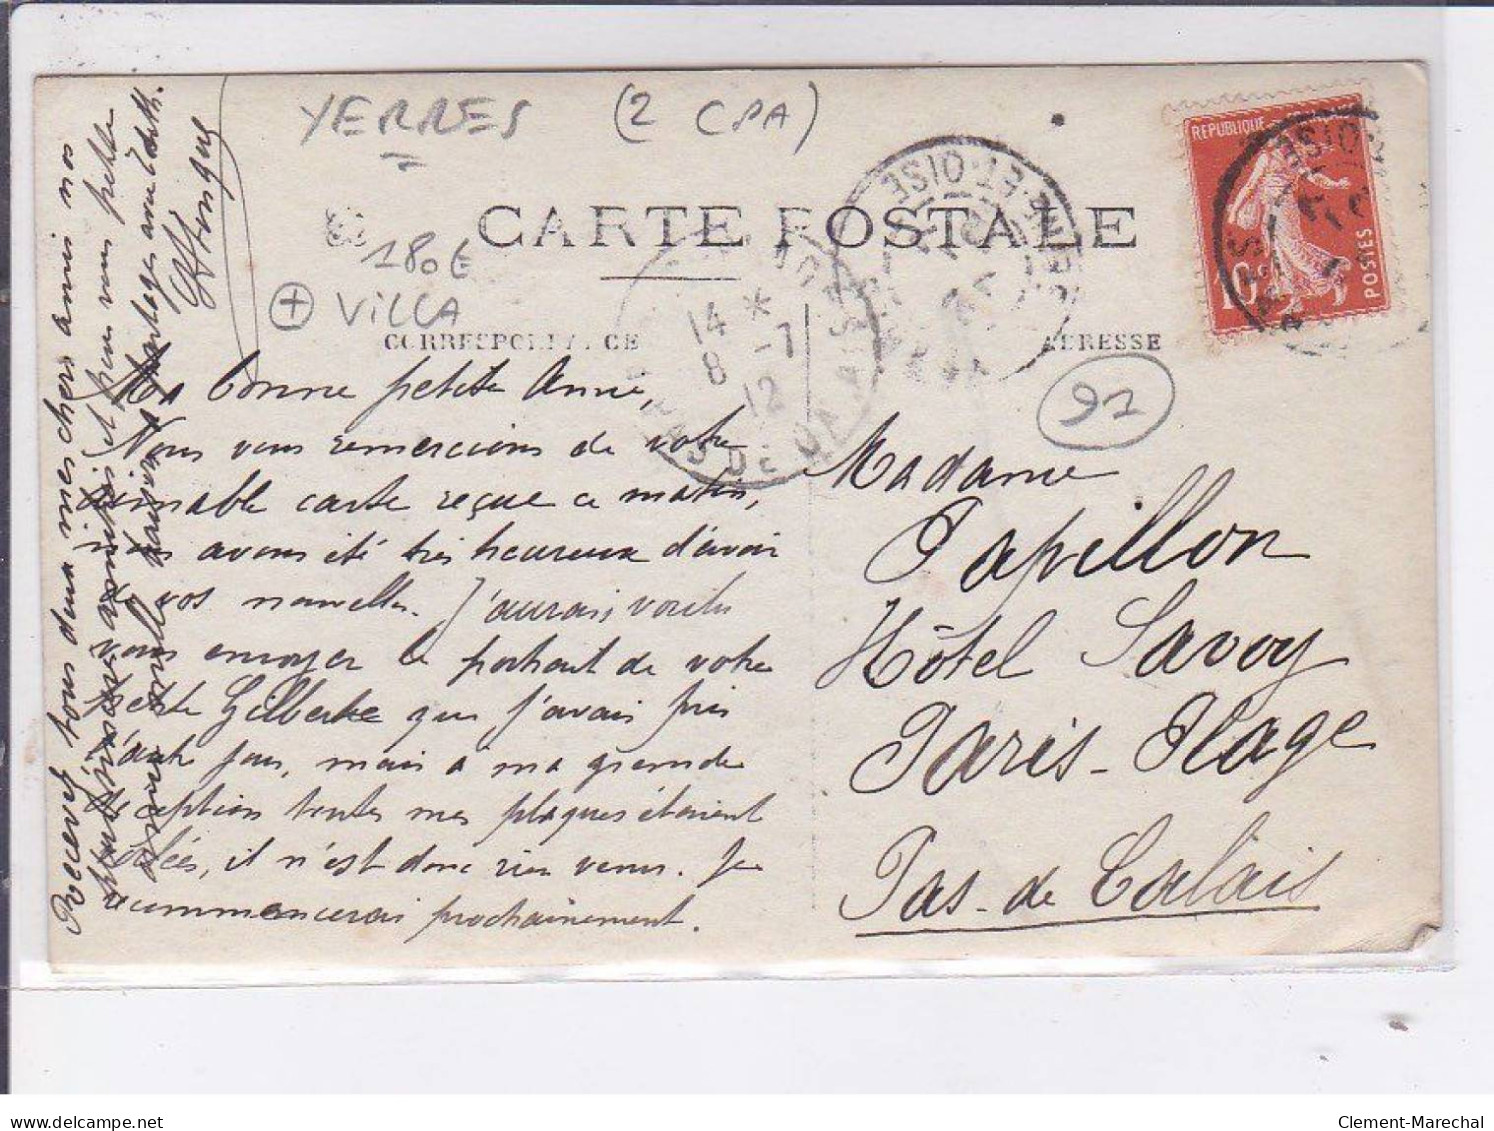 YERRES (2 CPA)
180€
+ VILLA
CARTE POSTALE
CORRESPONDANCE
ADRESSE
91
REPUBLIQUE
10c
POSTES
SEINE-ET-OISE
14 * 
8 -7
12
PAS DE CALAIS
Ma bonne petite Anne,
Nous vous remercions de votre
aimable carte reçue ce matin,
nous avons été très heureux d'avoir
de vos nouvelles. J'aurais voulu
vous envoyer le portrait de votre
petite Gilberte que j'avais pris
l'autre jour, mais à ma grande
déception toutes mes plaques étaient
voilées, il n'est donc rien venu. Je
recommencerai prochainement.
Recevez, tous deux mes chers amis nos
plus sincères amitiés et pour vous petite
Anne mille baisers
Madame
Papillon
Hôtel Savoy
Paris-Plage
Pas-de Calais
Clement-Marechal
delcampe.net